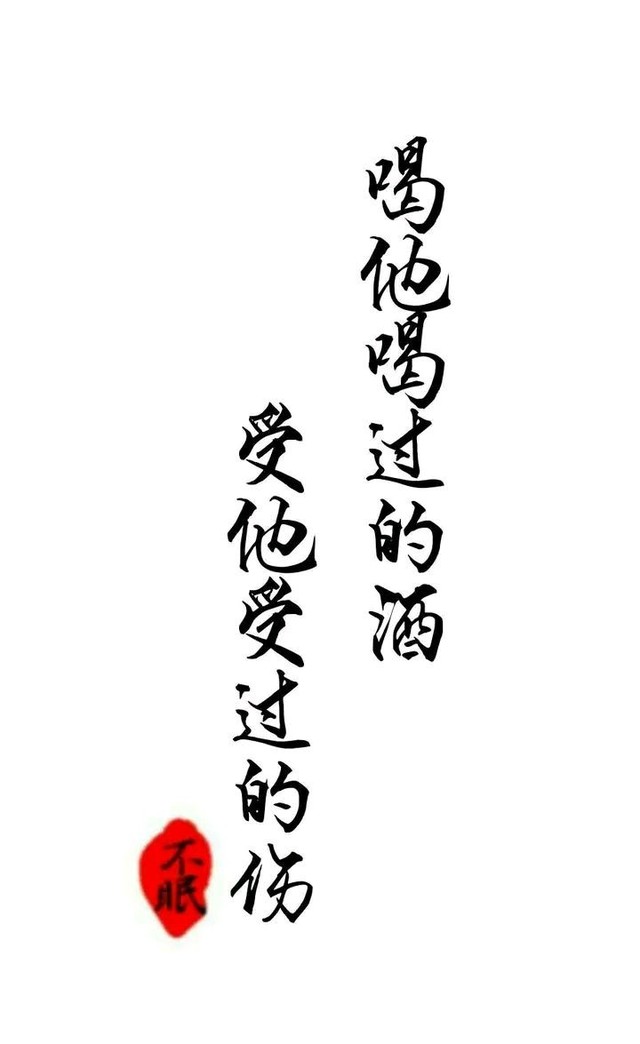 喝他喝过的酒
受他受过的伤
不眠